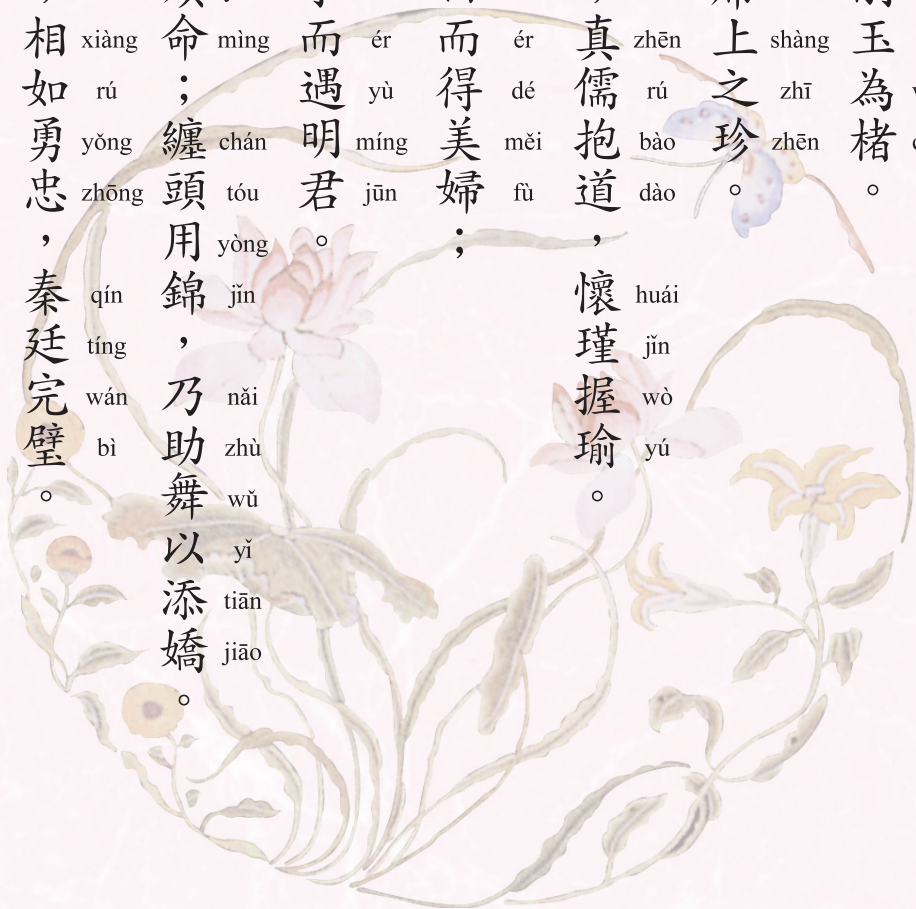 玉為楮。
上之珍。
shàng zhī zhēn
，真儒抱道，懷瑾握瑜。
zhēn rú bào dào huái jǐn wò yú
而得美婦；
ér dé měi fù
而遇明君。
ér yù míng jūn
命；纏頭用錦，乃助舞以添嬌。
mìng chán tóu yòng jǐn nǎi zhù wǔ yǐ tiān jiāo
，相如勇忠，秦廷完璧。
xiàng rú yǒng zhōng qín tíng wán bì